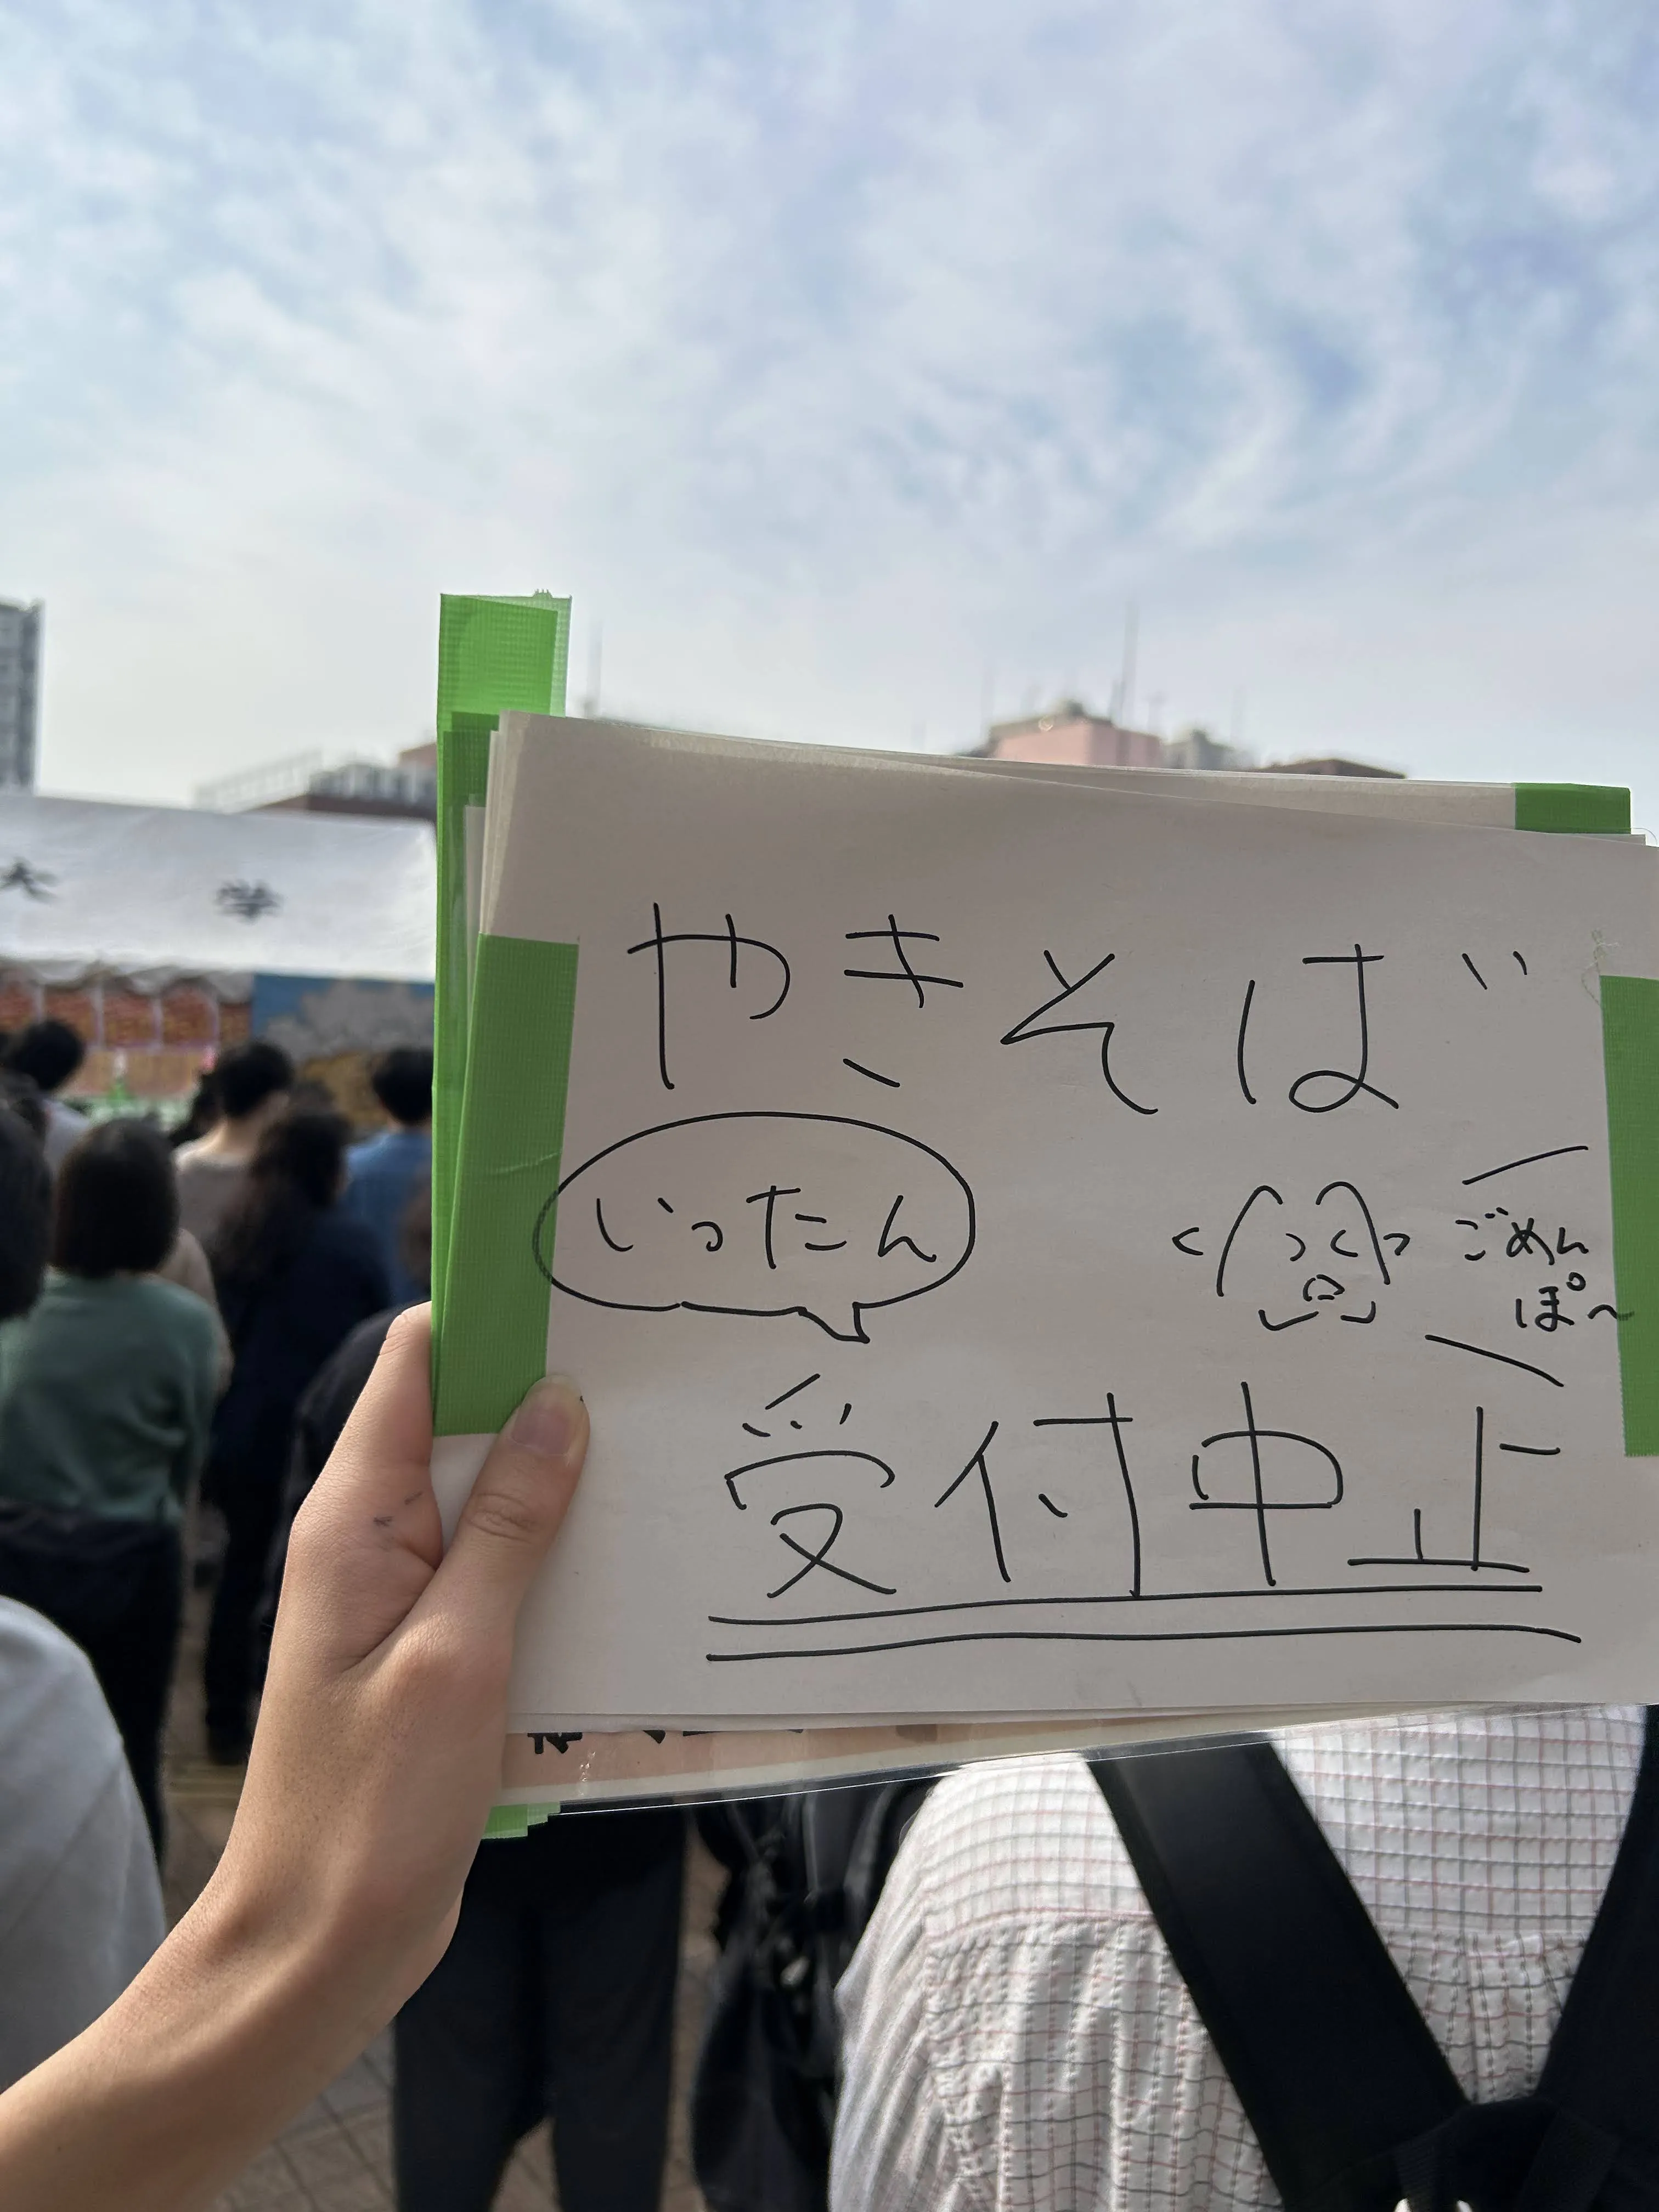 大 学
やきそば
いったん
ごめん
ぽ〜
受付中止